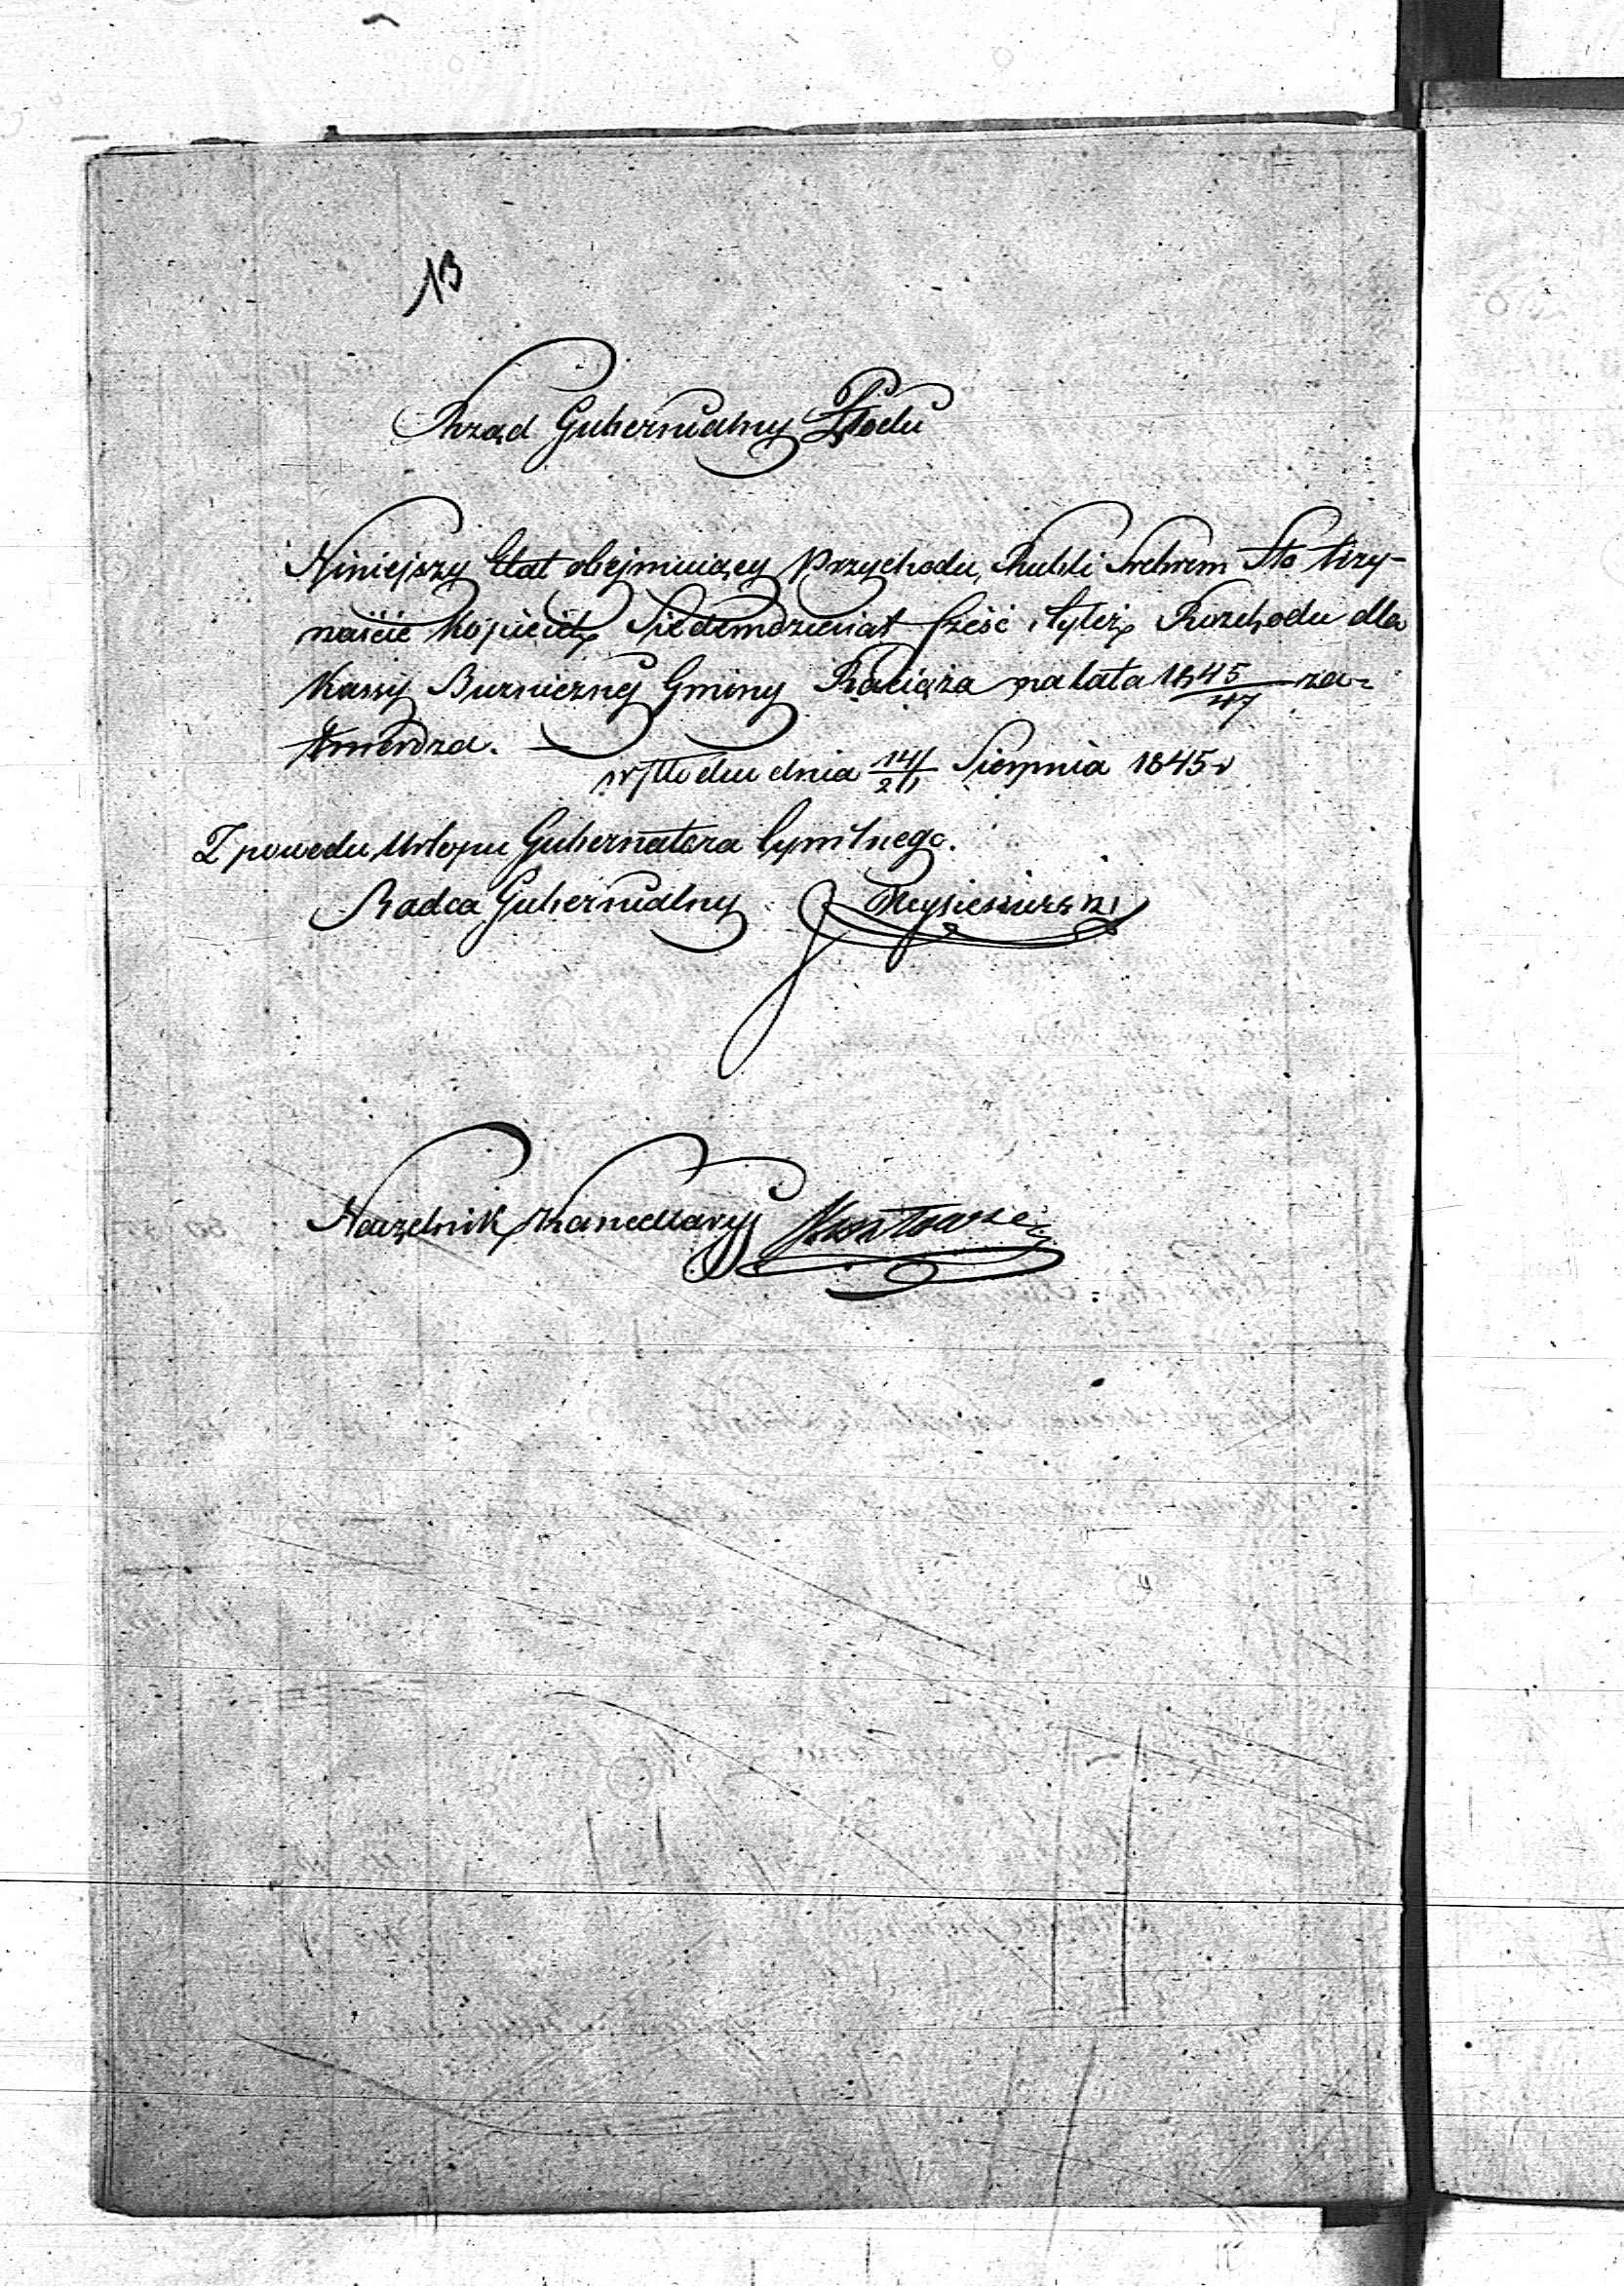 13
Rząd Gubernialny Płocki
Niniejszy Etat obejmuiący Przychodu, Rubli Srebrem Sto trzy-
naście kopieiek Siedemdziesiat sześć, i tyleż Rozchodu dla
Kassy Bużniczney Gminy Raciąża na lata 1845/47 za-
twierdza.
w Płocku dnia 14/26 Sierpnia 1845 r
Z powodu Urlopu Gubernatora Cywilnego.
Radca Gubernialny
Naczelnik Kancellaryi